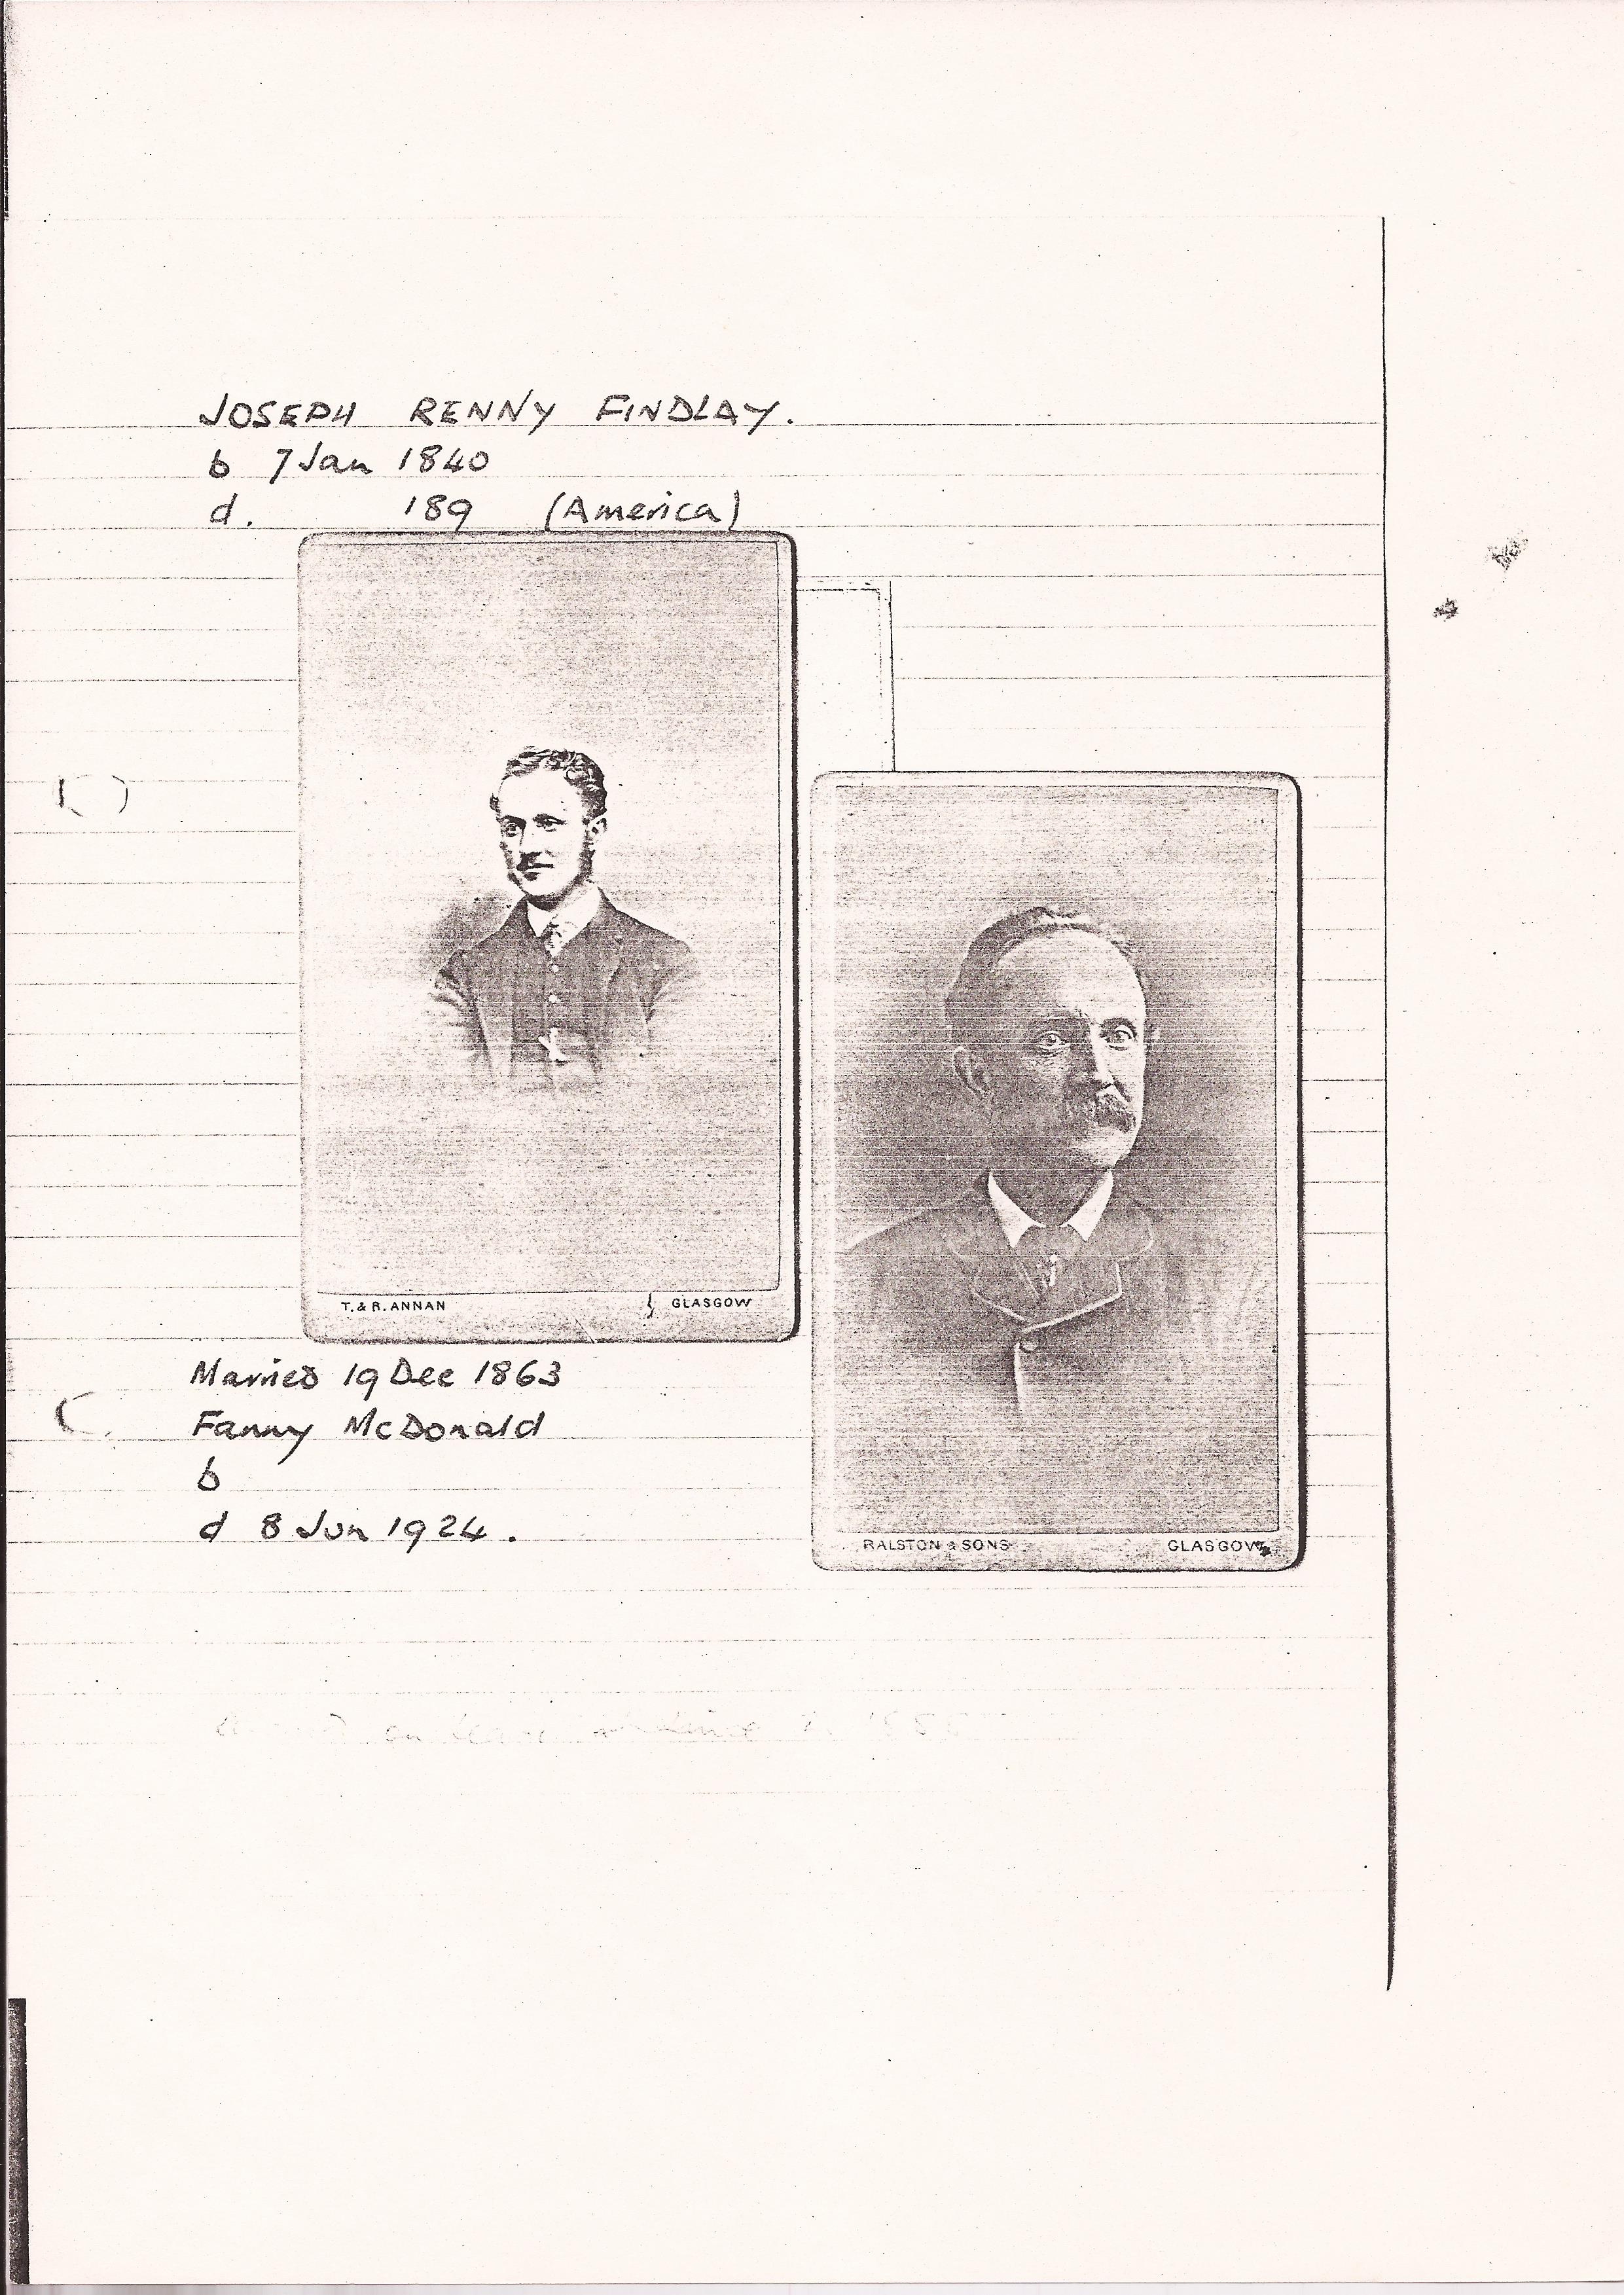 JOSEPH RENNY FINDLAY.
b 7 Jan 1840
d. 189 (America)
T. & R. ANNAN GLASGOW
RALSTON & SONS GLASGOW
Married 19 Dec 1863
Fanny McDonald
b
d 8 Jun 1924.